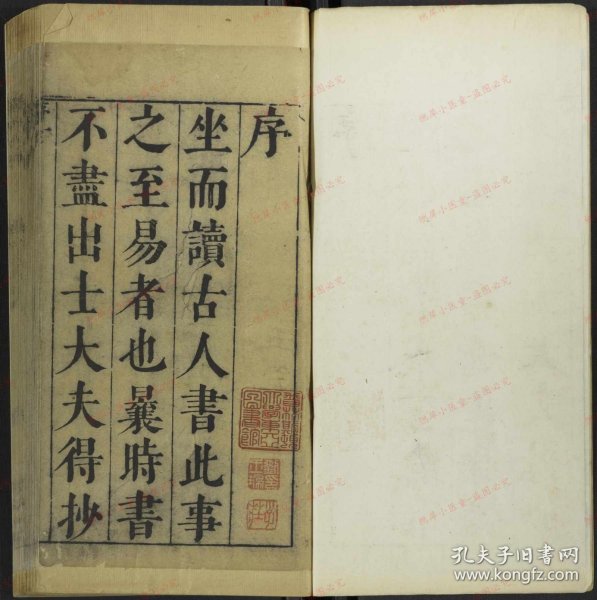 序
坐而讀古人書此事
之至易者也曩時書
不盡出士大夫得抄
孔夫子旧书网
www.kongfz.com